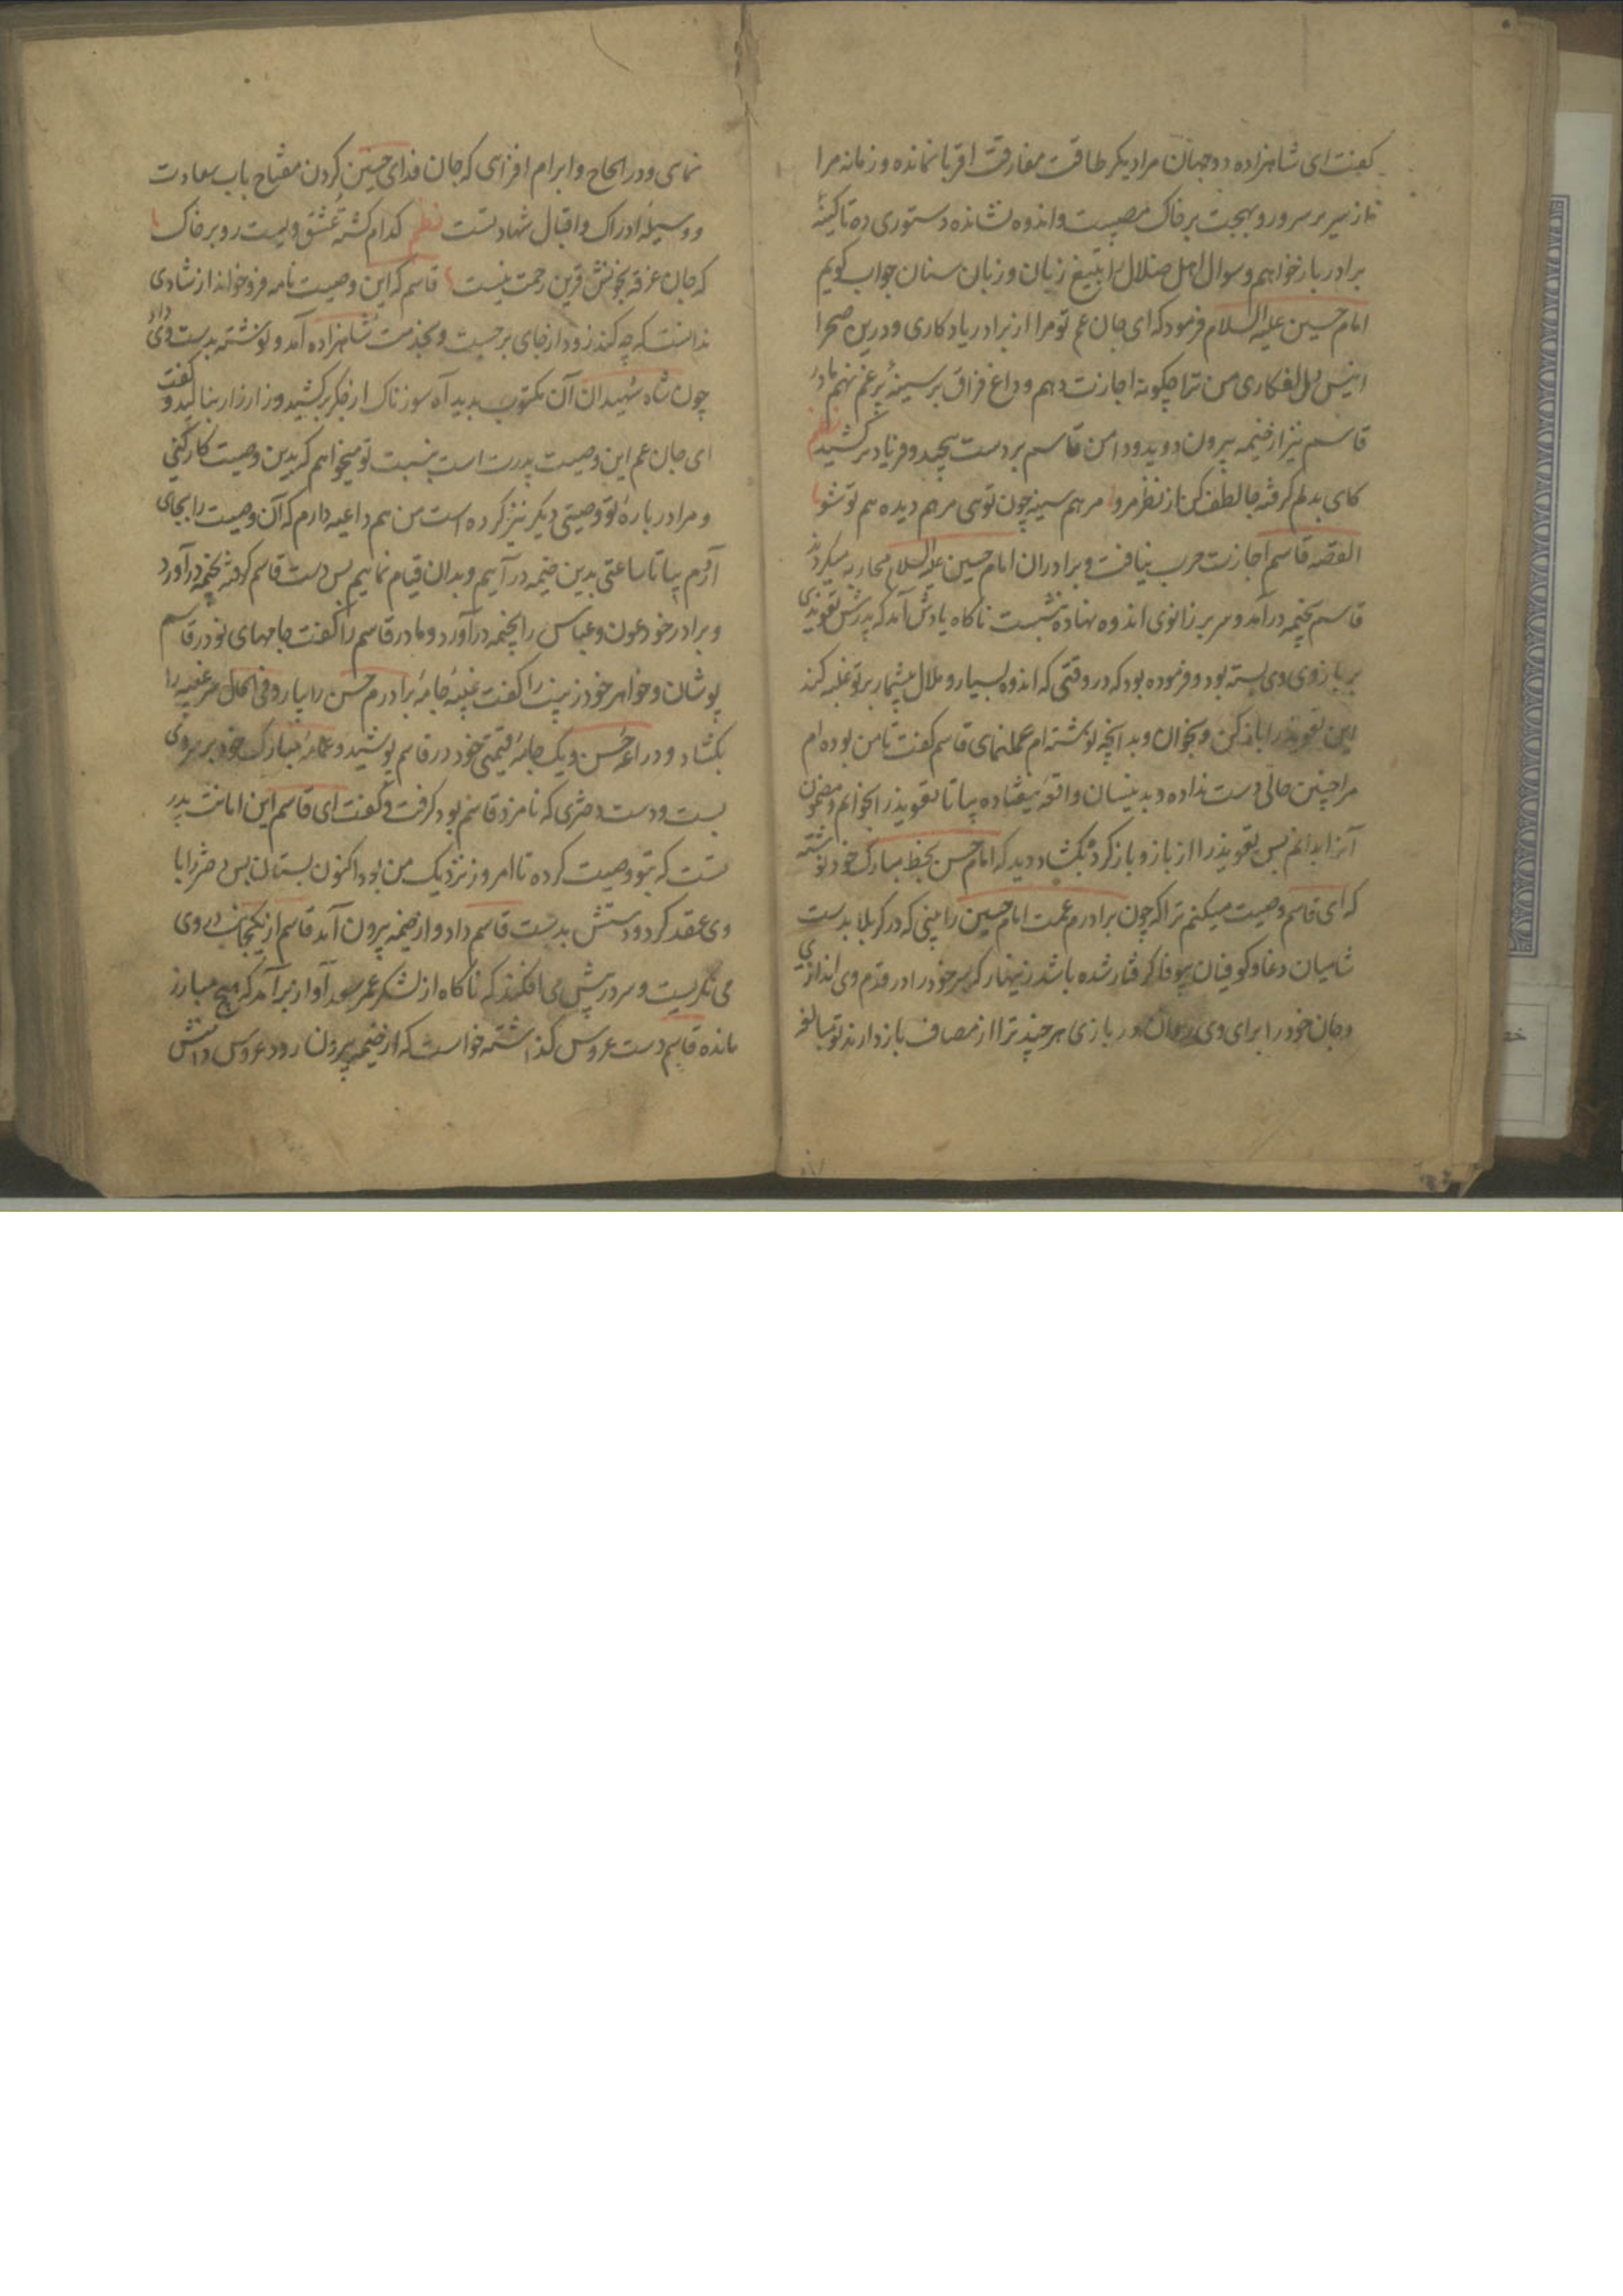 کفت ای شاهزاده دوجهان مرا دیکر طاقت مفارقت اقربا نمانده و زمانه مرا
از سریر سرور و بهجت بر خاک مصیبت و اندوه نشانده دستوری ده تا کینهٔ
برادر بازخواهم و سوال اهل ضلال را بتیغ زبان و زبان سنان جواب کویم
امام حسین علیه السلام فرمود که ای جان عم تو مرا از برادر یادکاری و درین صحرا
انیس دل افکاری من ترا چکونه اجازت دهم و داغ فراق بر سینهٔ پر غم نهم مادر
قاسم نیز از خیمه بیرون دوید و دامن قاسم بر دست پیچید و فریاد بر کشید نظم
کای بدلم کرفته جا لطف کن از نظر مرو مرهم سینه چون توی مرهم دیده هم تو شو
القصه قاسم اجازت حرب نیافت و برادران امام حسین علیه السلام محاربه میکردند
قاسم بخیمه درآمد و سر بر زانوی اندوه نهاده بنشست ناکاه یادش آمد که پدرش تعویذی
بر بازوی وی بسته بود و فرموده بود که در وقتی که اندوه بسیار و ملال بیشمار بر تو غلبه کند
این تعویذ را باز کن و بخوان و بدانچه نوشته ام عمل نمای قاسم کفت تا من بوده ام
مرا چنین حالی دست نداده و بدینسان واقعهٔ نیفتاده بیا تا تعویذ را بخوانم و مضمون
آنرا بدانم پس تعویذ را از بازو باز کرد و بکشاد دید که امام حسن بخط مبارک خود نوشته
که ای قاسم وصیت میکنم ترا که چون برادرم عمت امام حسین را بینی که در کربلا بدست
شامیان دغا و کوفیان بیوفا کرفتار شده باشد زینهار که سر خود را در قدم وی اندازی
و جان خود را برای وی در بازی هر چند ترا از مصاف باز دارند تو مبالغه
نمای و در الحاح و ابرام افزای که جان فدای حسین کردن مفتاح باب سعادت
و وسیلهٔ ادراک و اقبال شهادتست نظم کدام کشتهٔ عشق ویست رو بر خاک
که جان غرقه بخونش قرین رحمت نیست قاسم که این وصیت نامه فرو خواند از شادی
ندانست که چه کند زود از جای برجست و بخدمت شاهزاده آمد و نوشته بدست وی داد
چون شاه شهیدان آن مکتوب بدید آه سوزناک از جکر برکشید و زار زار بنالید و کفت
ای جان عم این وصیت پدرت است نسبت تو میخواهم که بدین وصیت کار کنی
و مرا دربارهٔ تو وصیتی دیکر نیز کرده است من هم داعیه دارم که آن وصیت را بجای
آرم بیا تا ساعتی بدین خیمه درآییم و بدان قیام نماییم پس دست قاسم کرفته بخیمه درآورد
و برادر خود عون و عباس را بخیمه درآورد و مادر قاسم را کفت جامهای نو در قاسم
پوشان و خواهر خود زینب را کفت عیبهٔ جامهٔ برادرم حسن را بیار و فی الحال سر عیبه را
بکشاد و دراعهٔ حسن و یک جامهٔ قیمتی خود در قاسم پوشید و عمامهٔ مبارک خود بر سر وی
بست و دست دختری که نامزد قاسم بود کرفت و کفت ای قاسم این امانت پدر
تست که بتو وصیت کرده تا امروز نزدیک من بود اکنون بستان پس دختر را با
وی عقد کرد و دستش بدست قاسم داد و از خیمه بیرون آمد قاسم از یکجانب در وی
می نکریست و سر در پیش می افکند که ناکاه از لشکر عمر سعد آواز برآمد که هیچ مبارز
مانده قاسم دست عروس کذاشته خواست که از خیمه بیرون رود عروس دامنش